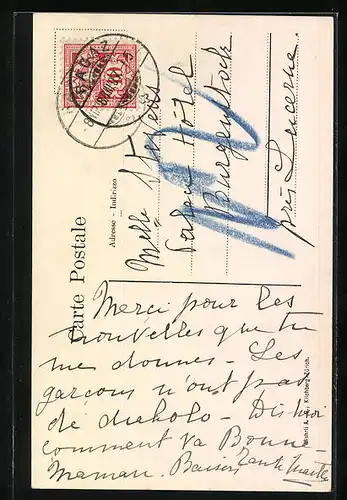 Carte Postale
Adresse - Indirizzo
Melle Stevens
Palace Hôtel
Burgenstock
près Lucerne.
Merci pour les
nouvelles que tu
me donnes - Les
garçons n'ont pas
de diabolo - Dis moi
comment va Bonne
Maman. Baisers Tante